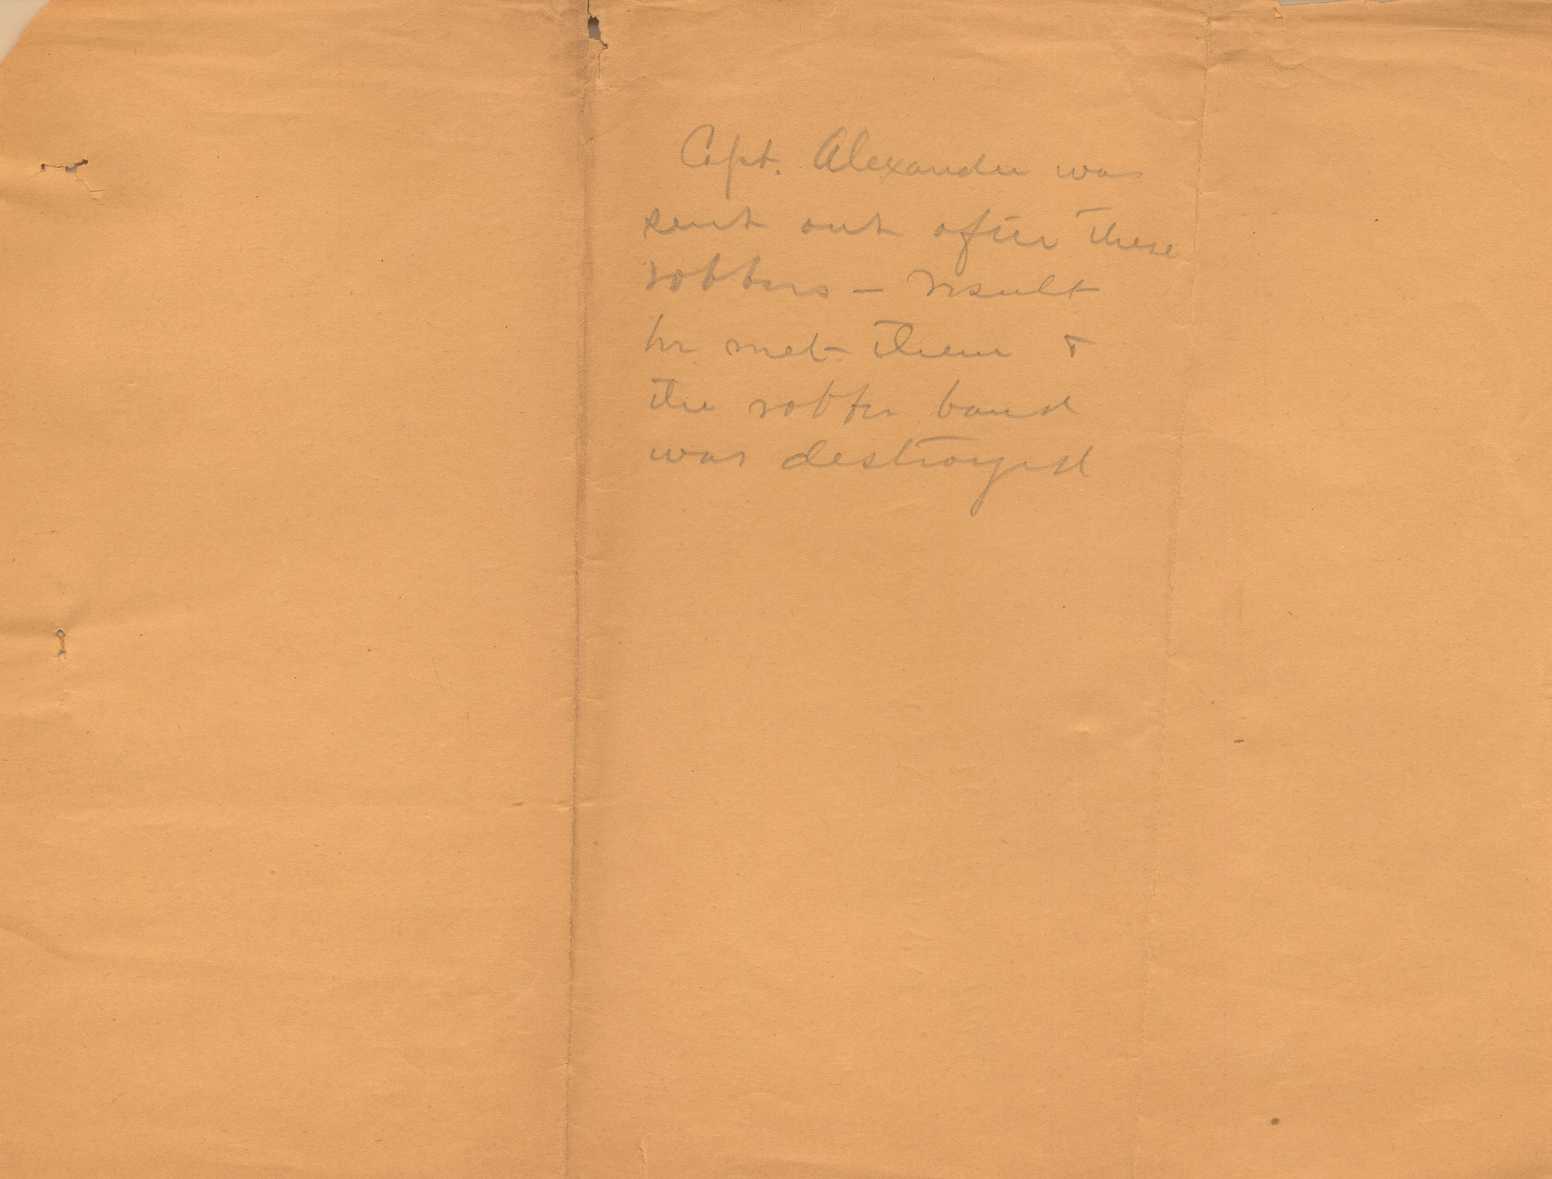 Capt. Alexander was
sent out after these
robbers – result
he met them &
the robber band
was destroyed